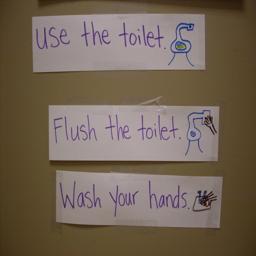 Use the toilet.
Flush the toilet.
Wash your hands.